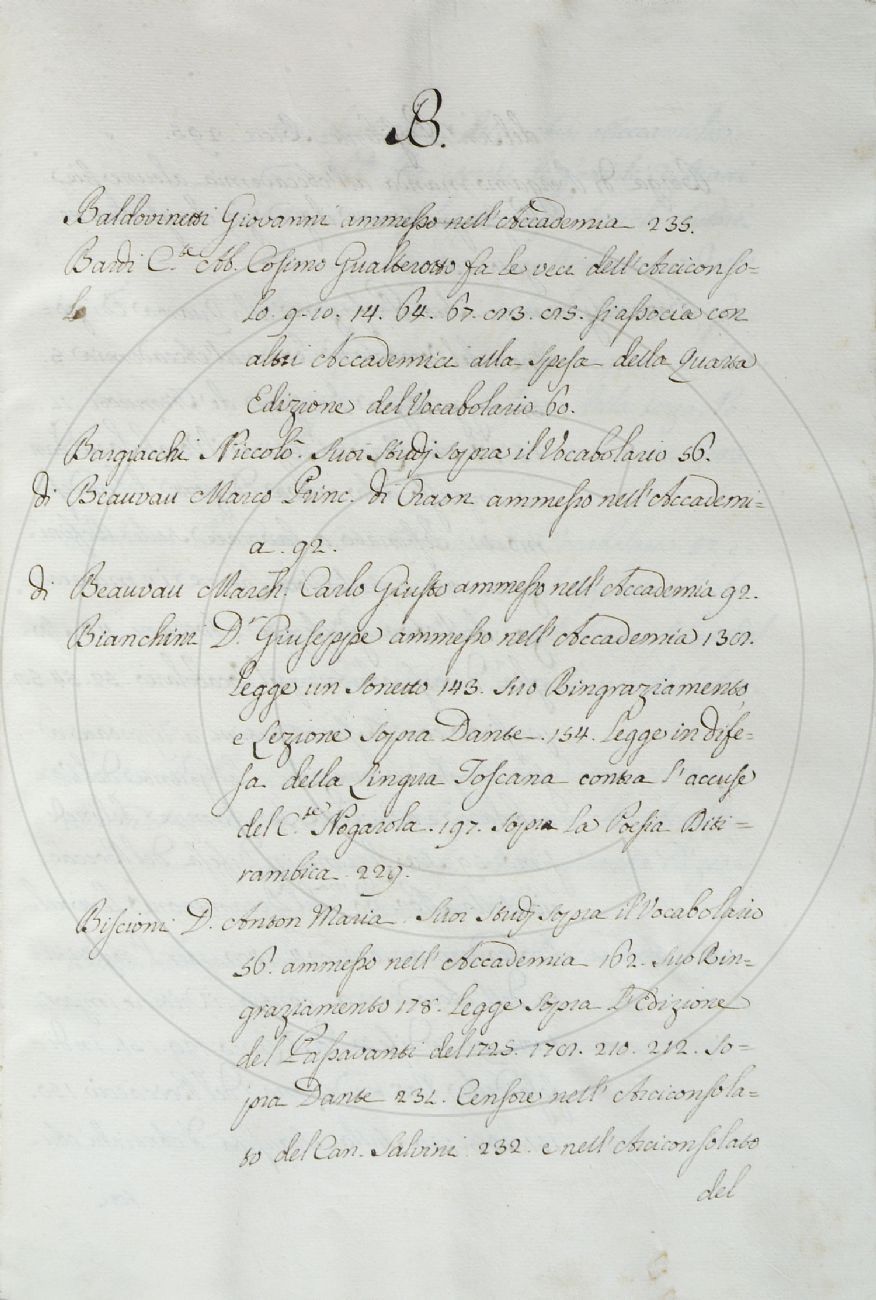 B.
Baldovinetti Giovanni ammesso nell'Accademia 235.
Bardi C.te Ab. Cosimo Gualterotto fa le veci dell'Arciconso=
lo. 9. 10. 14. 64. 67. si associa con
altri Accademici alla spesa della Quarta
Edizione del Vocabolario 60.
Bargiacchi Niccolò. Suoi Studj sopra il Vocabolario 56.
di Beauvau Marco Princ. di Craon ammesso nell'Accademi=
a. 92.
di Beauvau March. Carlo Giusto ammesso nell'Accademia 92.
Bianchini D.r Giuseppe ammesso nell'Accademia
Legge un Sonetto 143. Suo Ringraziamento,
e Lezione sopra Dante. 154. Legge in dife=
sa della Lingua Toscana contra l'accuse
del C.te Nogarola. 197. sopra la Poesia Diti=
rambica 229.
Biscioni D. Anton Maria Suoi Studj sopra il Vocabolario
56. ammesso nell'Accademia 162. Suo Rin=
graziamento 178. Legge sopra l'Edizione
del Passavanti del 1725. 210. 212. So=
pra Dante Censore nell'Arciconsola=
to del Can. Salvini 232. e nell'Arciconsolato
del